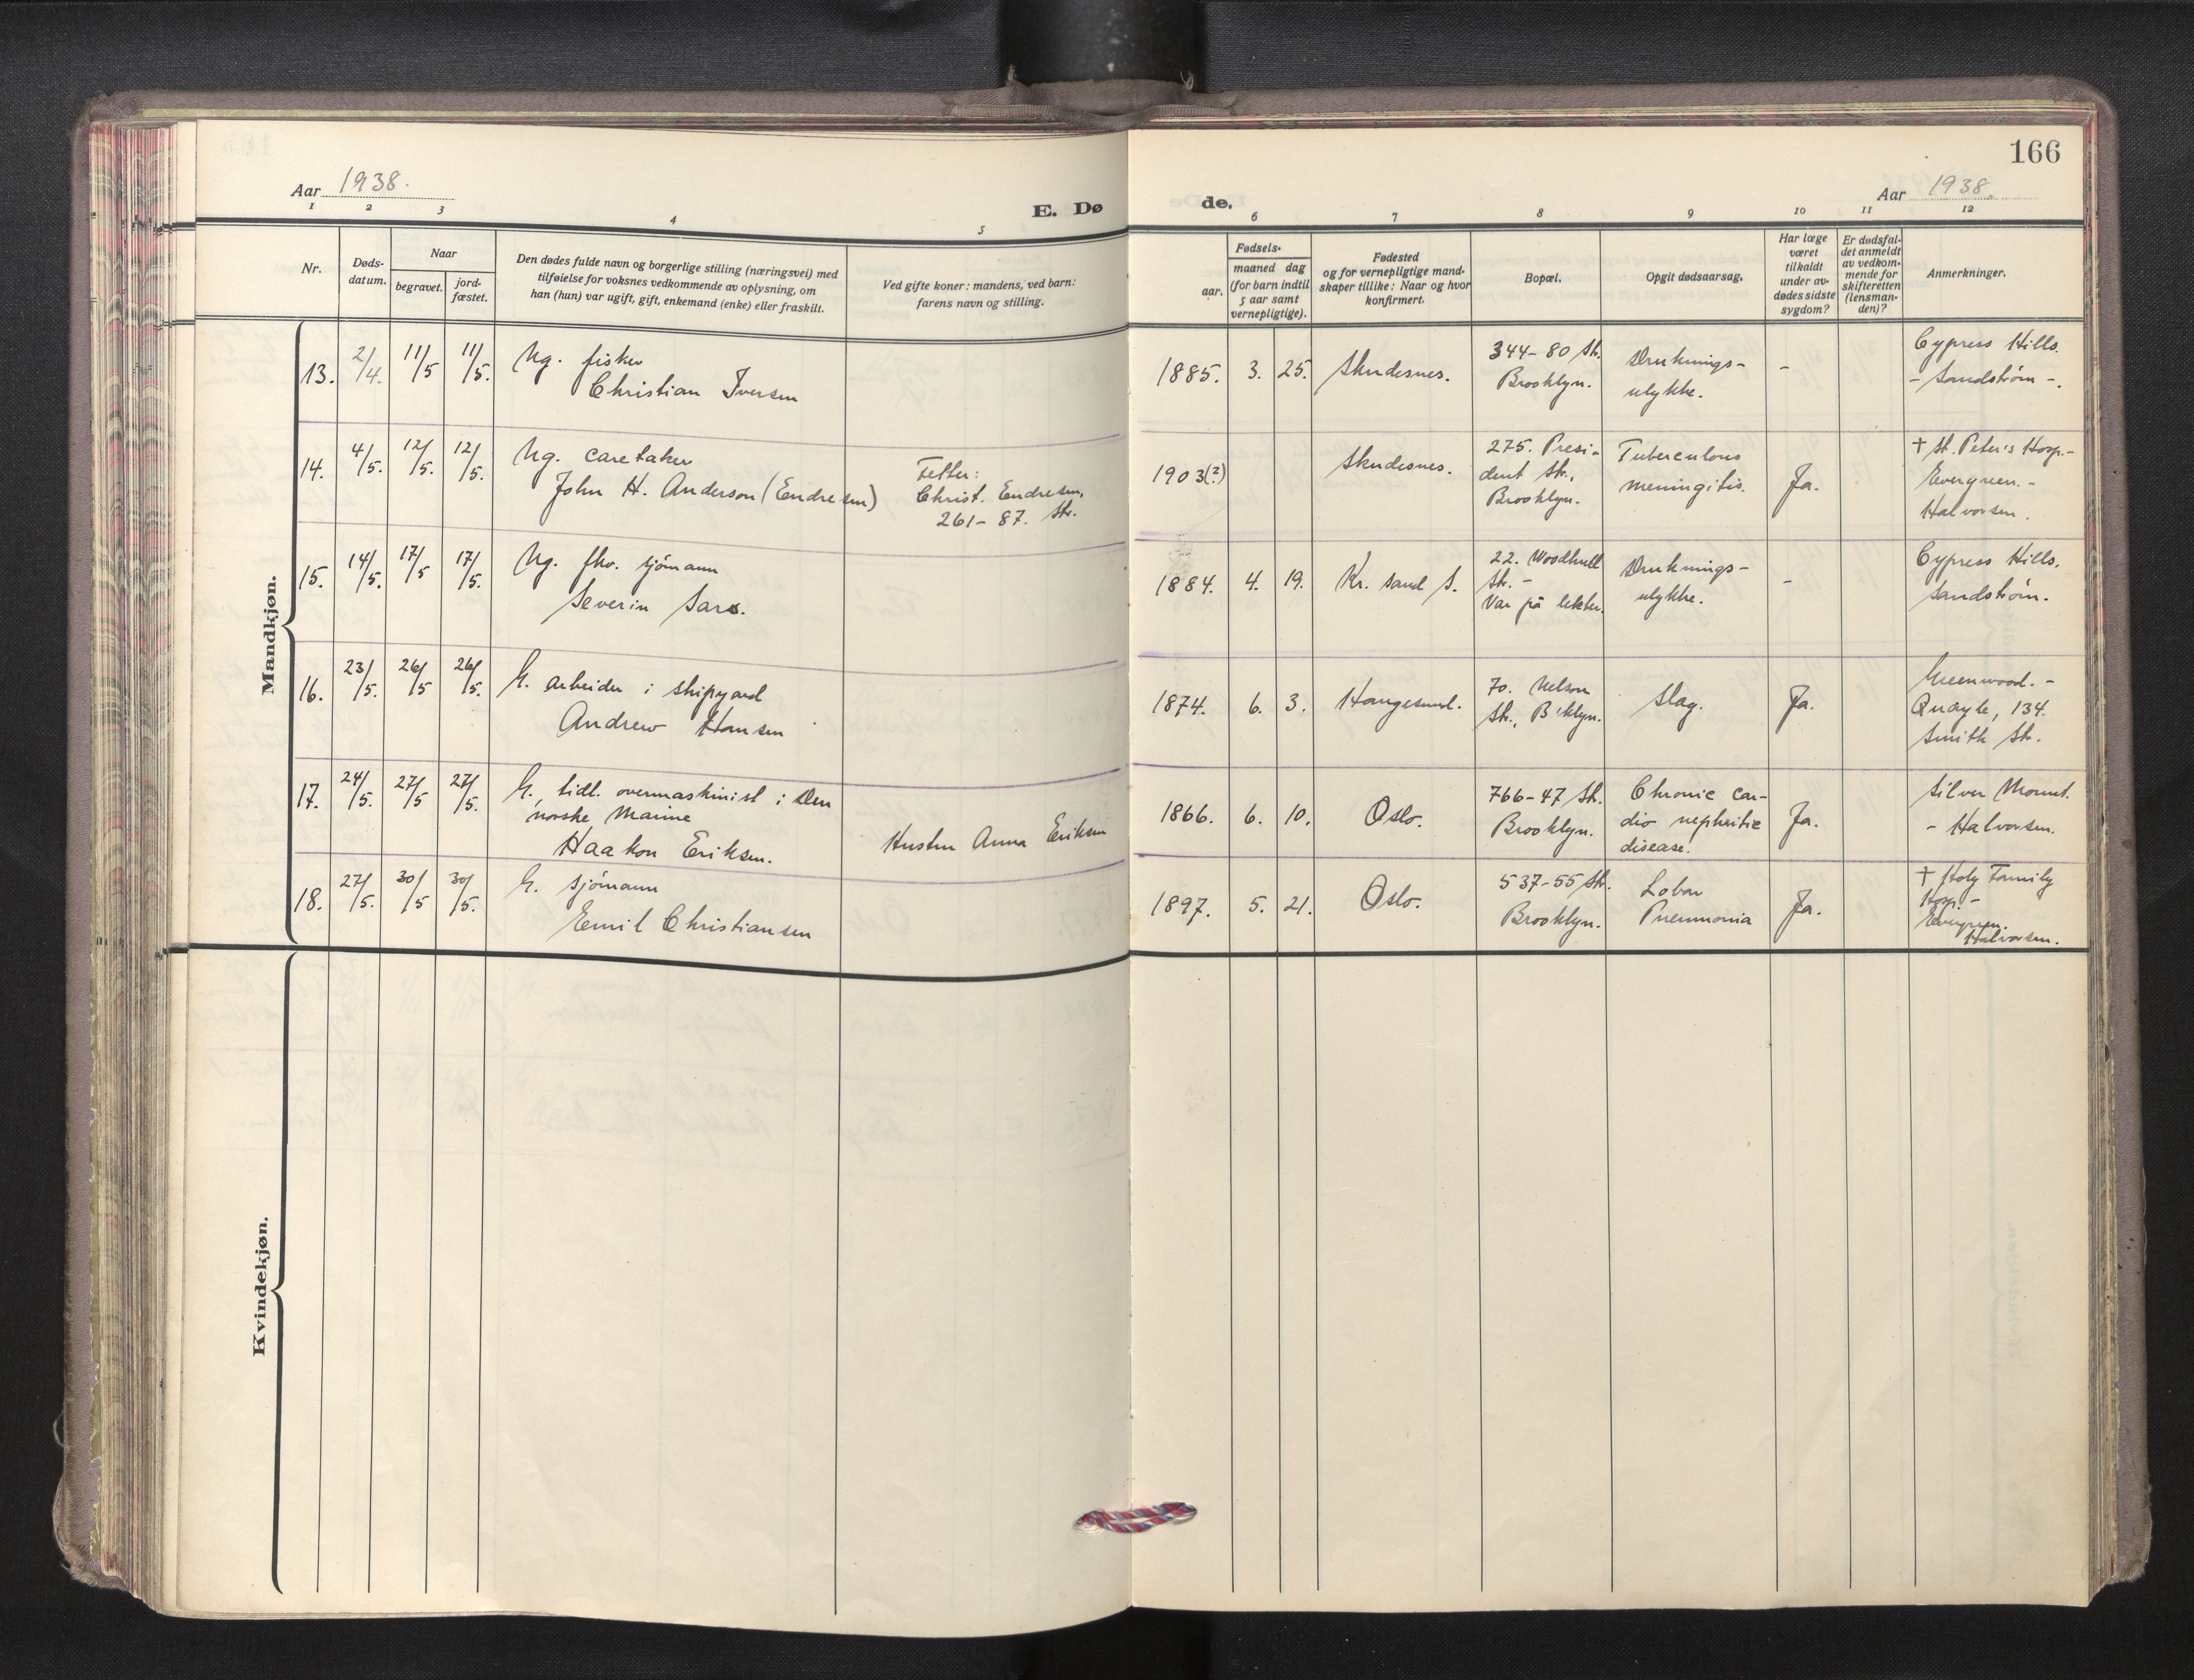 166
Aar 1938.
Aar 1938.
E. Dø
de.
1 2 3 4 5 6 7 8 9 10 11 12
Nr.
Døds-
datum.
Naar
begravet.
jord-
fæstet.
Den dødes fulde navn og borgerlige stilling (næringsvei) med
tilføielse for voksnes vedkommende av oplysning, om
han (hun) var ugift, gift, enkemand (enke) eller fraskilt.
Ved gifte koner: mandens, ved barn:
farens navn og stilling.
Fødsels-
aar.
maaned dag
(for barn indtil
5 aar samt
vernepligtige).
Fødested
og for vernepligtige mand-
skaper tillike: Naar og hvor
konfirmert.
Bopæl.
Opgit dødsaarsag.
Har læge
været
tilkaldt
under av-
dødes sidste
sygdom?
Er dødsfal-
det anmeldt
av vedkom-
mende for
skifteretten
(lensman-
den)?
Anmerkninger.
Mandkjøn.
13. 2/4. 11/5 11/5.
Ug. fisker
Christian Iversen
1885. 3. 25. Skudesnes.
344-80 Str.
Brooklyn.
Druknings-
ulykke.
-
Cypress Hills.
- Sandström -.
14. 4/5. 12/5. 12/5.
Ug. caretaker
John H. Anderson (Endresen)
Fetter:
Christ. Endresen,
261-87. Str.
1903(?) Skudesnes.
275. Presi-
dent Str.,
Brooklyn.
Tuberculous
meningitis.
Ja.
† St. Peter's Hosp.-
Evergreen. -
Halvorsen.
15. 14/5. 17/5 17/5.
Ug. fhv. sjömann
Severin Sars.
1884. 4. 19. Kr. sand S.
22. Woodhull
Str. -
Var på lekter.
Druknings-
ulykke.
-
Cypress Hills.
Sandström.
16. 23/5. 26/5 26/5.
G. arbeider i shipyard
Andrew Hansen
1874. 6. 3. Haugesund.
70. Nelson
Str., B'klyn.
Slag.
Ja.
Greenwood. -
Quayle, 134.
Smith Str.
17. 24/5. 27/5 27/5.
G., tidl. overmaskinist i Den
norske Marine
Haakon Eriksen.
Hustru Anna Eriksen
1866. 6. 10. Oslo.
766-47 Str.
Brooklyn.
Chronic car-
dio nephritic
disease.
Ja.
Silver Mount.
- Halvorsen.
18. 27/5. 30/5 30/5.
G. sjömann
Emil Christiansen
1897. 5. 21. Oslo.
537-55 Str.
Brooklyn.
Lobar
Pneumonia
Ja.
† Holy Family
Hosp. -
Evergreen.
Halvorsen.
Kvindekjøn.